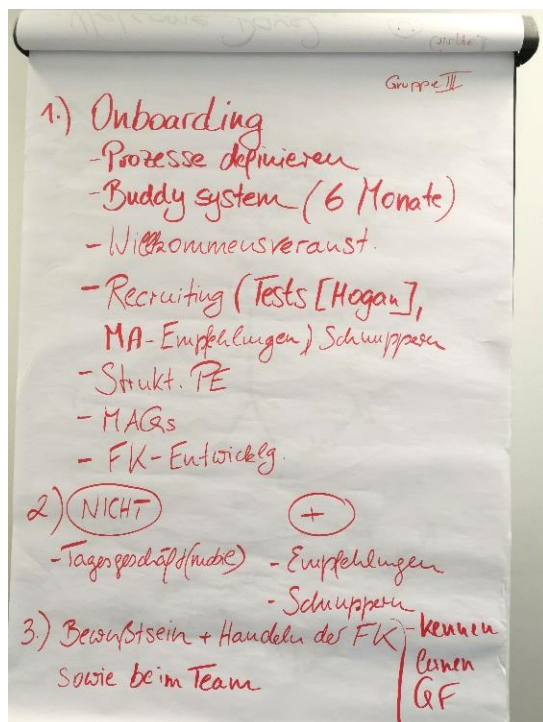 Gruppe III
1.) Onboarding
- Prozesse definieren
- Buddy system (6 Monate)
- Willkommensveranst.
- Recruiting (Tests [Hogan],
MA-Empfehlungen) Schnuppern
- Strukt. PE
- MAGs
- FK-Entwicklg.
2) NICHT
- Tagesgeschäft
+
- Empfehlungen
- Schnuppern
3.) Bewußtsein + Handeln der FK
sowie beim Team
- kennen
lernen
GF